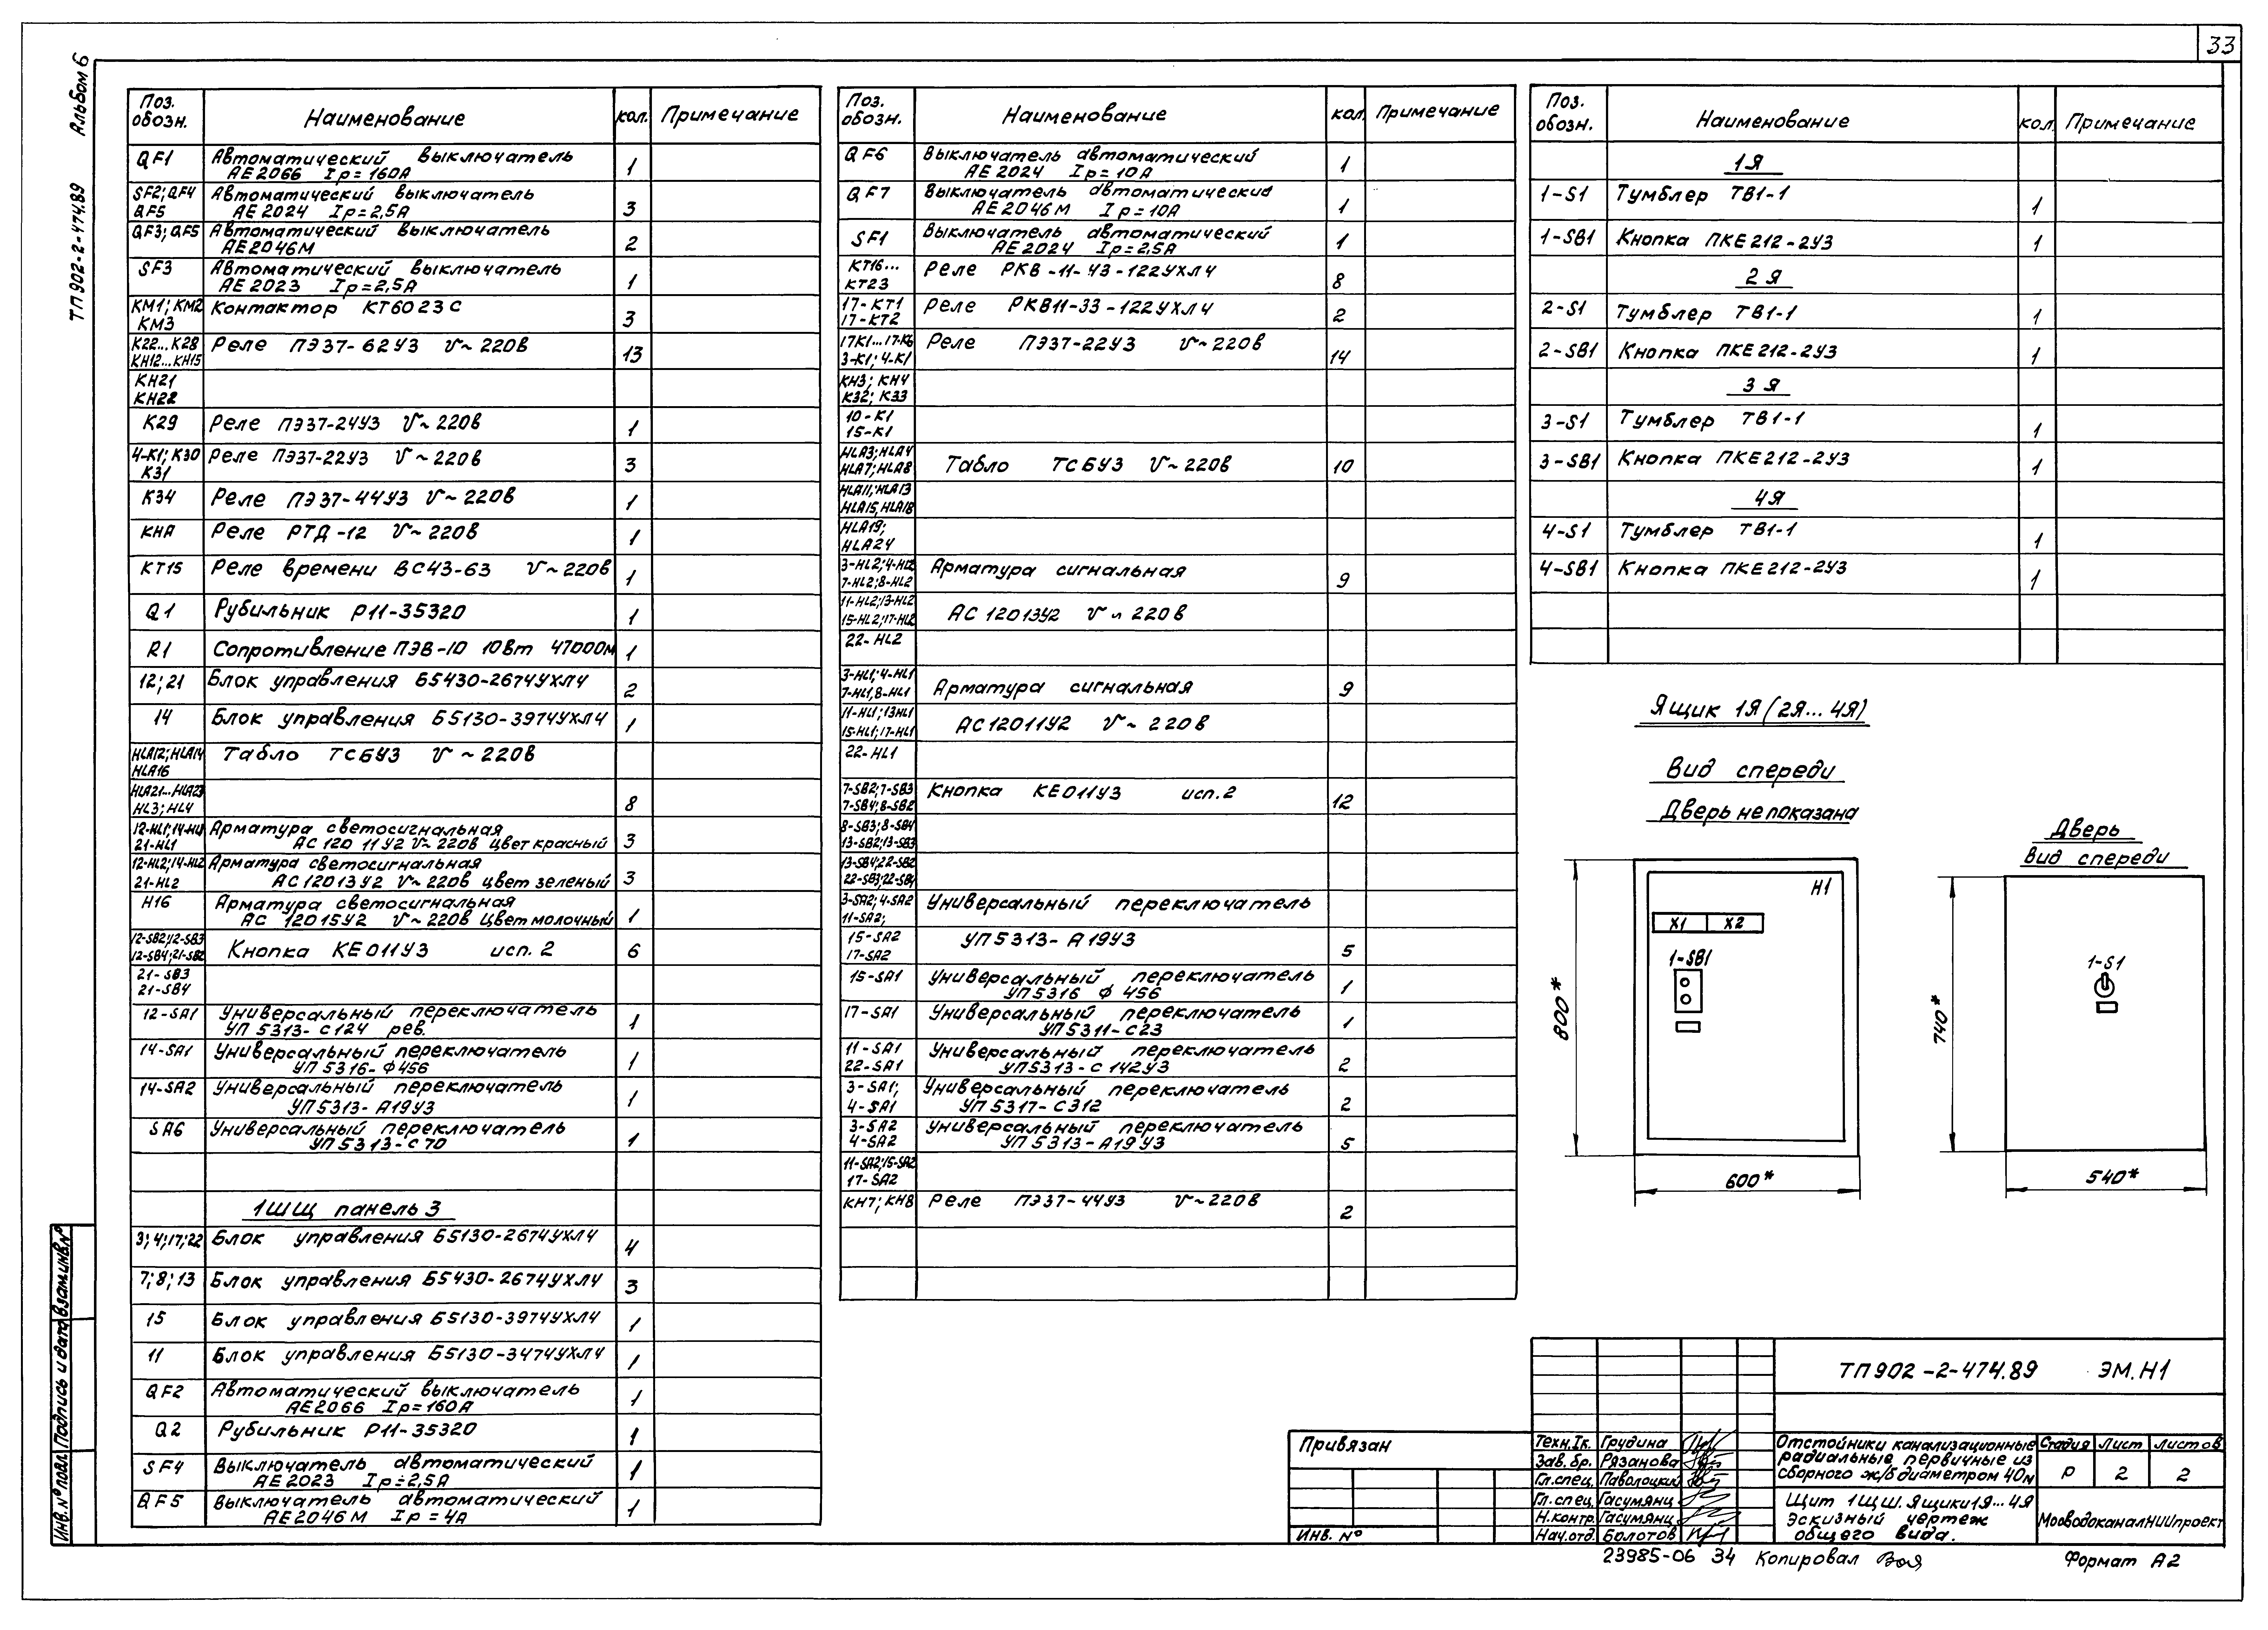 33
Альбом 6
ТП 902-2-474.89
Поз. обозн. Наименование кол. Примечание
QF1 Автоматический выключатель 1
АЕ2066 Iр=160А
SF2; QF4 Автоматический выключатель
QF5 АЕ2024 Iр=2,5А 3
QF3; QF5 Автоматический выключатель 2
АЕ2046М
SF3 Автоматический выключатель 1
АЕ2023 Iр=2,5А
КМ1; КМ2 Контактор КТ6023С
КМ3 3
К22...К28 Реле ПЭ37-62У3 V~220В 13
КН12...КН15
КН21
КН22
К29 Реле ПЭ37-24У3 V~220В 1
4-К1; К30 Реле ПЭ37-22У3 V~220В 3
К31
К34 Реле ПЭ37-44У3 V~220В 1
КНА Реле РТД-12 V~220В 1
КТ15 Реле времени ВС43-63 V~220В 1
Q1 Рубильник Р11-35320 1
R1 Сопротивление ПЭВ-10 10Вт 4700Ом 1
12; 21 Блок управления Б5430-2674УХЛ4 2
14 Блок управления Б5130-3974УХЛ4 1
HLA12; HLA14 Табло ТСБУ3 V~220В
HLA16
HLA21...HLA23
HL3; HL4 8
12-HL1; 14-HL1 Арматура светосигнальная
21-HL1 АС 120 11У2 V~220В Цвет красный 3
12-HL2; 14-HL2 Арматура светосигнальная
21-HL2 АС12013У2 V~220В цвет зеленый 3
Н16 Арматура светосигнальная
АС 12015У2 V~220В Цвет молочный 1
12-SB2; 12-SB3 Кнопка КЕ011У3 исп. 2 6
12-SB4; 21-SB2
21-SB3
21-SB4
12-SA1 Универсальный переключатель 1
УП 5313-С124 рев.
14-SA1 Универсальный переключатель 1
УП 5316-Ф456
14-SA2 Универсальный переключатель 1
УП5313-А19У3
SA6 Универсальный переключатель 1
УП5313-С70
1ШЩ панель 3
3; 4; 17; 22 Блок управления Б5130-2674УХЛ4 4
7; 8; 13 Блок управления Б5430-2674УХЛ4 3
15 Блок управления Б5130-3974УХЛ4 1
11 Блок управления Б5130-3474УХЛ4 1
QF2 Автоматический выключатель 1
АЕ2066 Iр=160А
Q2 Рубильник Р11-35320 1
SF4 Выключатель автоматический 1
АЕ2023 Iр=2,5А
QF5 Выключатель автоматический 1
АЕ2046М Iр=4А
Поз. обозн. Наименование кол. Примечание
QF6 Выключатель автоматический 1
АЕ2024 Iр=10А
QF7 Выключатель автоматический 1
АЕ2046М Iр=10А
SF1 Выключатель автоматический 1
АЕ2024 Iр=2,5А
КТ16... Реле РКВ-11-43-122УХЛ4
КТ23 8
17-КТ1 Реле РКВ11-33-122УХЛ4
17-КТ2 2
17К1...17-К6 Реле ПЭ37-22У3 V~220В
3-К1; 4-К1 14
КН3; КН4
К32; К33
10-К1
15-К1
HLA3; HLA4
HLA7; HLA8 Табло ТСБУ3 V~220В 10
HLA11; HLA13
HLA15, HLA18
HLA19;
HLA24
3-HL2; 4-HL2 Арматура сигнальная
7-HL2; 8-HL2 9
11-HL2; 13-HL2
15-HL2; 17-HL2 АС 12013У2 V~220В
22-HL2
3-HL1; 4-HL1
7-HL1, 8-HL1 Арматура сигнальная 9
11-HL1; 13HL1
15-HL1; 17-HL1 АС12011У2 V~220В
22-HL1
7-SB2; 7-SB3 Кнопка КЕ011У3 исп. 2
7-SB4; 8-SB2 12
8-SB3; 8-SB4
13-SB2; 13-SB3
13-SB4; 22-SB2
22-SB3; 22-SB4
3-SA2; 4-SA2 Универсальный переключатель
11-SA2;
15-SA2 УП5313-А19У3
17-SA2 5
15-SA1 Универсальный переключатель 1
УП5316 Ф 456
17-SA1 Универсальный переключатель 1
УП5311-С23
11-SA1 Универсальный переключатель
22-SA1 УП5313-С142У3 2
3-SA1; Универсальный переключатель
4-SA1 УП5317-С312 2
3-SA2 Универсальный переключатель
4-SA2 УП5313-А19У3 5
11-SA2; 15-SA2
17-SA2
КН7; КН8 Реле ПЭ37-44У3 V~220В 2
Поз. обозн. Наименование кол. Примечание
1Я
1-S1 Тумблер ТВ1-1 1
1-SB1 Кнопка ПКЕ212-2У3 1
2Я
2-S1 Тумблер ТВ1-1 1
2-SB1 Кнопка ПКЕ212-2У3 1
3Я
3-S1 Тумблер ТВ1-1 1
3-SB1 Кнопка ПКЕ212-2У3 1
4Я
4-S1 Тумблер ТВ1-1 1
4-SB1 Кнопка ПКЕ212-2У3 1
Ящик 1Я (2Я...4Я)
Вид спереди
Дверь не показана
Н1
Х1 Х2
1-SB1
800*
600*
Дверь
Вид спереди
1-S1
740*
540*
ТП902-2-474.89 ЭМ.Н1
Привязан
Инв. №
Техн.Iк. Грудина
Зав.бр. Рязанова
Гл.спец. Паволоцкий
Гл.спец. Гасумянц
Н.контр. Гасумянц
Нач.отд. Болотов
Отстойники канализационные
радиальные первичные из
сборного ж/б диаметром 40м
Стадия Лист Листов
Р 2 2
Щит 1ЩШ. Ящики 1Я...4Я
Эскизный чертеж
общего вида.
МосводоканалНИИпроект
23985-06 34 Копировал Формат А2
Инв. № подл. Подпись и дата Взам.инв.№